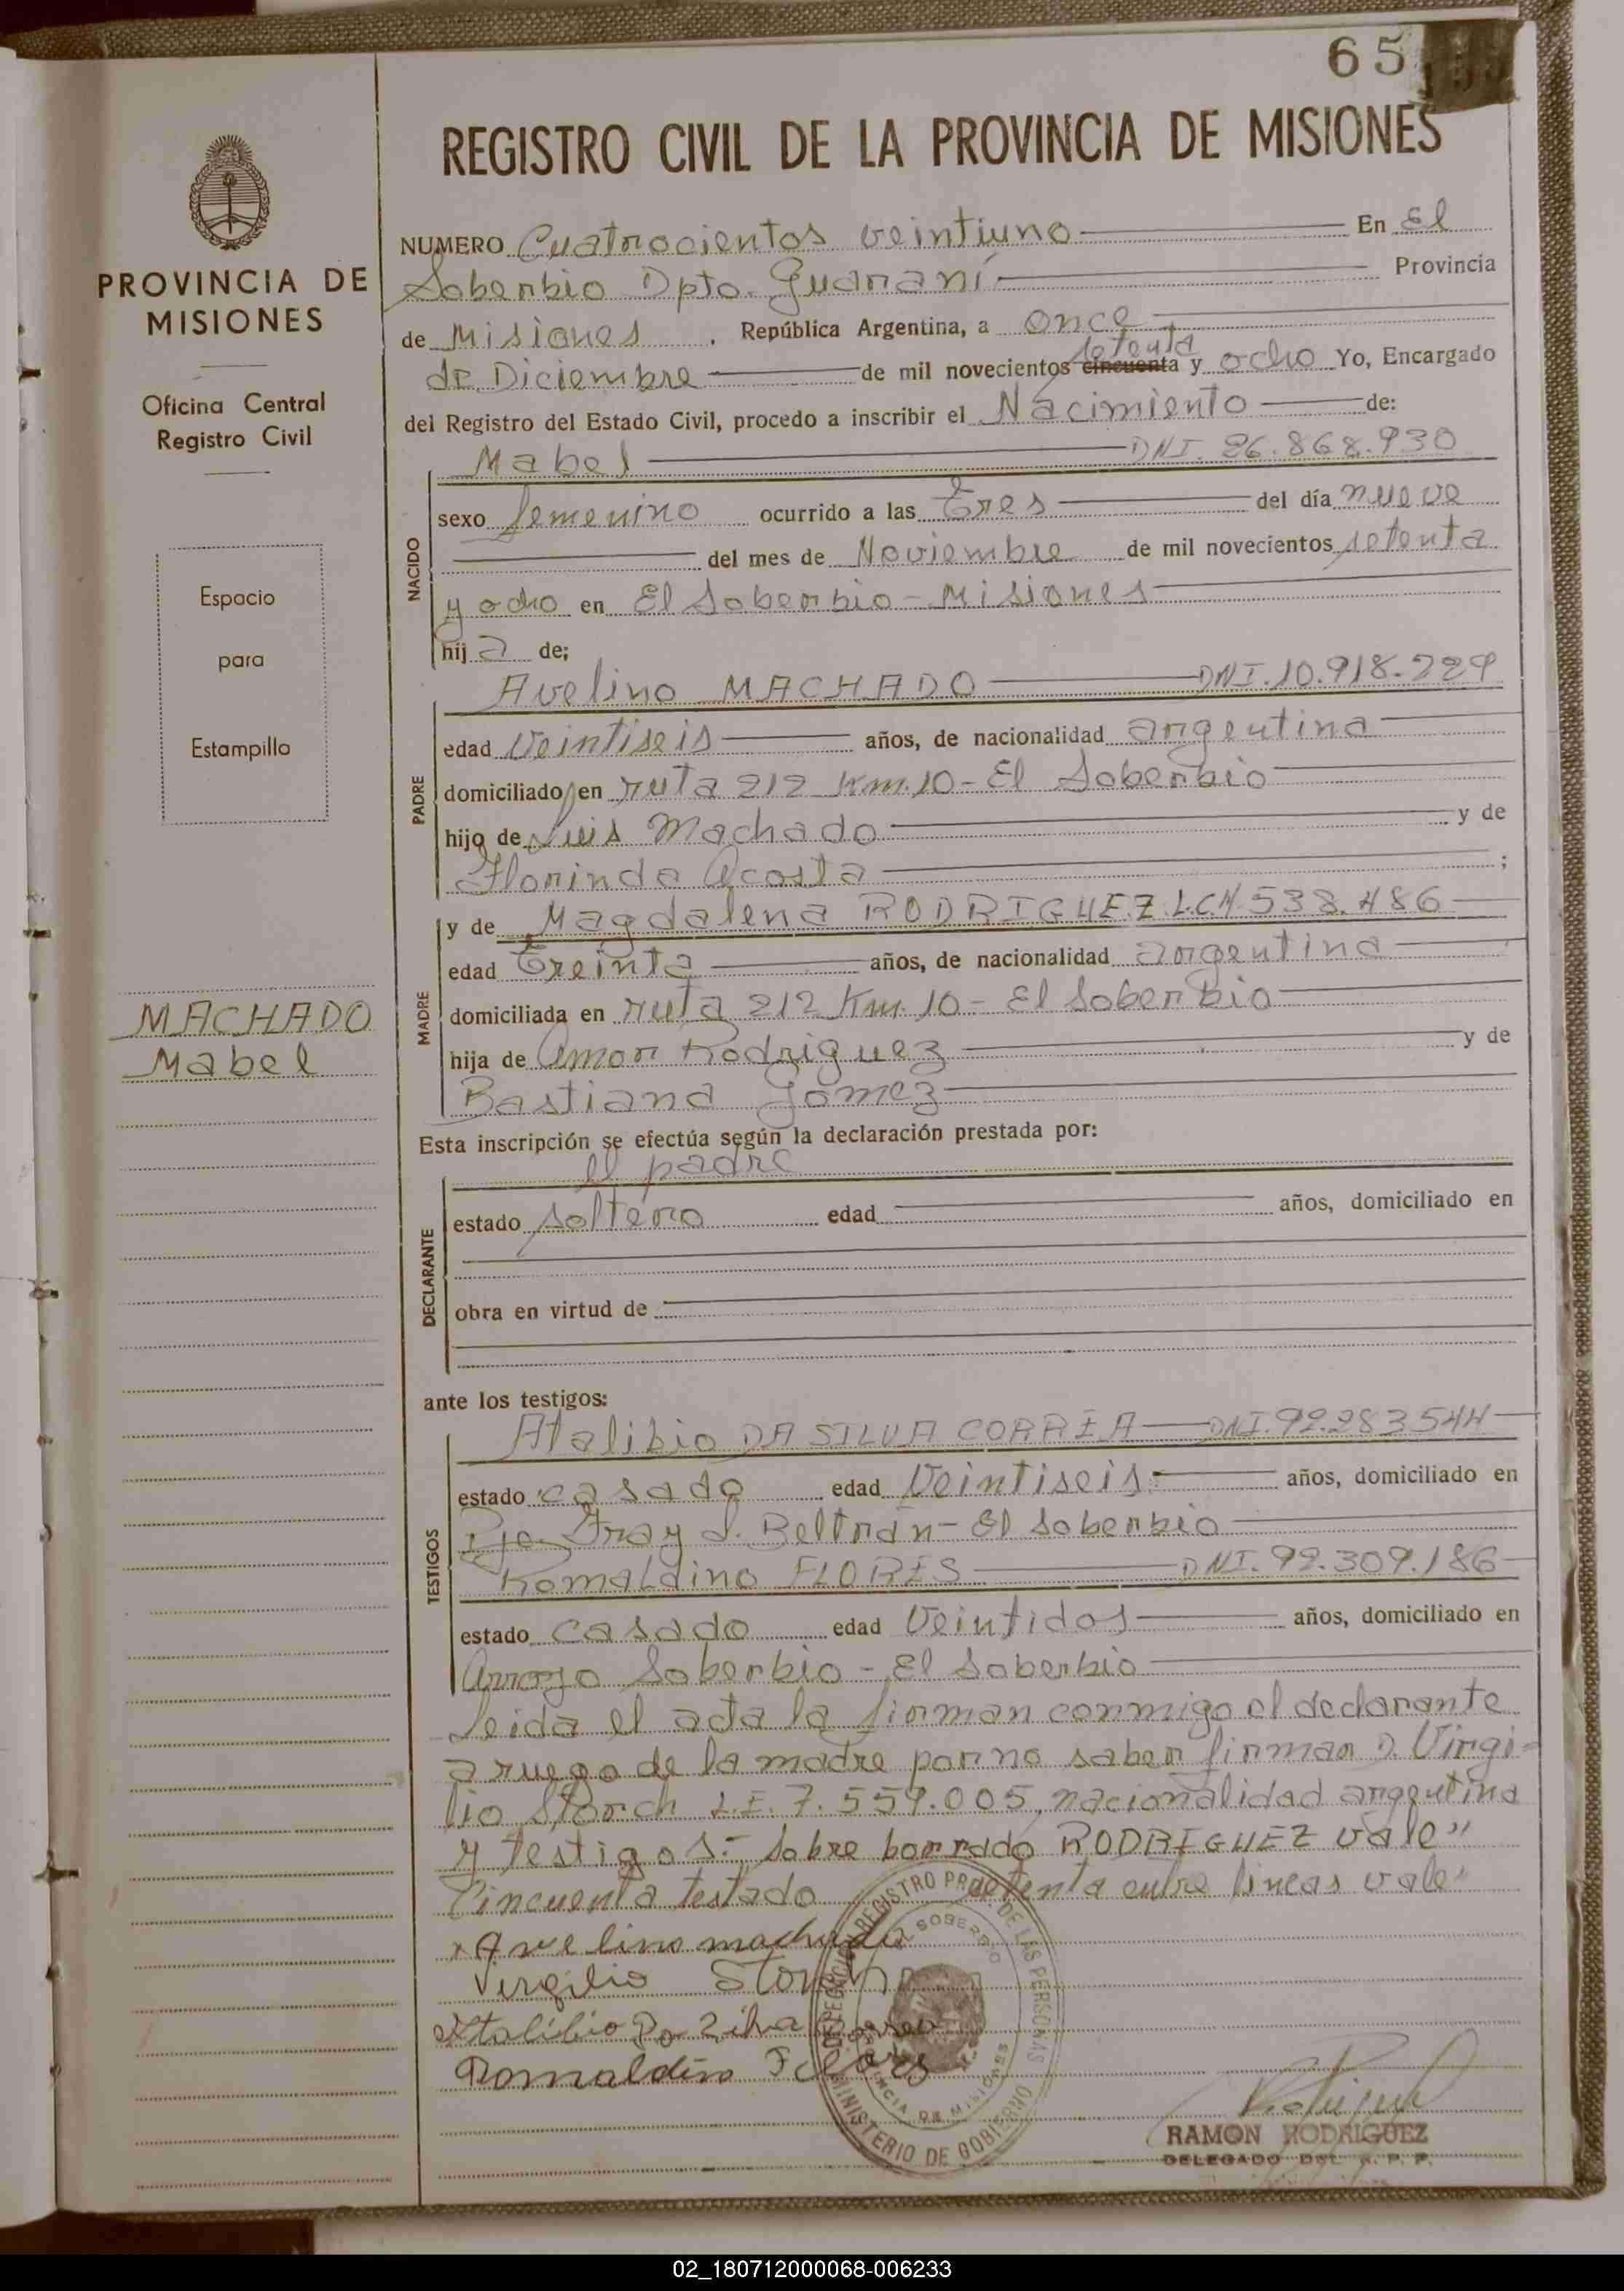 65
REGISTRO CIVIL DE LA PROVINCIA DE MISIONES
PROVINCIA DE
MISIONES
Oficina Central
Registro Civil
Espacio
para
Estampilla
MACHADO
Mabel
NUMERO Cuatrocientos veintiuno En El
Soberbio Dpto. Guaraní Provincia
de Misiones . República Argentina, a once
setenta
de Diciembre de mil novecientos cincuenta y ocho Yo, Encargado
del Registro del Estado Civil, procedo a inscribir el Nacimiento de:
Mabel DNI. 26.868.930
NACIDO
sexo femenino ocurrido a las Tres del día nueve
del mes de Noviembre de mil novecientos setenta
y ocho en El Soberbio - Misiones
hij a de;
Avelino MACHADO DNI. 10.918.229
PADRE
edad Veintiseis años, de nacionalidad argentina
domiciliado en ruta 212 Km. 10 - El Soberbio
hijo de Luis Machado y de
Florinda Acosta ;
y de Magdalena RODRIGUEZ L.C.4.538.486
MADRE
edad Treinta años, de nacionalidad argentina
domiciliada en ruta 212 Km. 10 - El Soberbio
hija de Amor Rodriguez y de
Bastiana Gomez
Esta inscripción se efectúa según la declaración prestada por:
el padre
DECLARANTE
estado soltero edad años, domiciliado en
obra en virtud de
ante los testigos:
Atalibio DA SILVA CORREA DNI. 92.283544
TESTIGOS
estado casado edad Veintiseis.- años, domiciliado en
Pje. Fray L. Beltrán - El Soberbio
Romaldino FLORES DNI. 92.309.186
estado casado edad Veintidos años, domiciliado en
Arroyo Soberbio - El Soberbio
Leida el acta la firman conmigo el declarante
a ruego de la madre por no saber firmar D. Virgi-
lio Storch L.E. 7.559.005, nacionalidad argentina
y testigos.- Sobre borrado RODRIGUEZ vale"
Cincuenta testado setenta entre lineas vale"
x Avelino machado
Vergilio Storch
Atalibio Da Silva Correa
Romaldino Flores
REGISTRO PROV. DE LAS PERSONAS
SOBERBIO
PROVINCIA DE MISIONES
MINISTERIO DE GOBIERNO
RAMON RODRIGUEZ
DELEGADO DEL R. P. P.
02_180712000068-006233